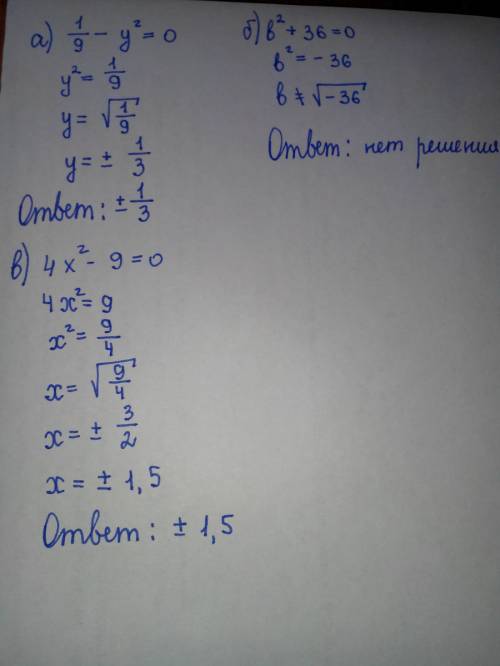 а) 1/9 - y² = 0
y² = 1/9
y = √1/9
y = ± 1/3
Ответ: ± 1/3
б) в² + 36 = 0
в² = - 36
в ≠ √-36
Ответ: нет решения
в) 4x² - 9 = 0
4x² = 9
x² = 9/4
x = √9/4
x = ± 3/2
x = ± 1,5
Ответ: ± 1,5